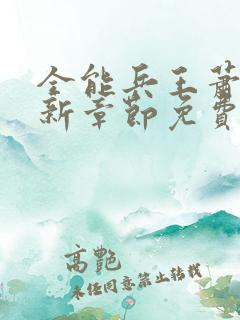 全能兵王萧
新章节免费
高艷
未经同意禁止转载